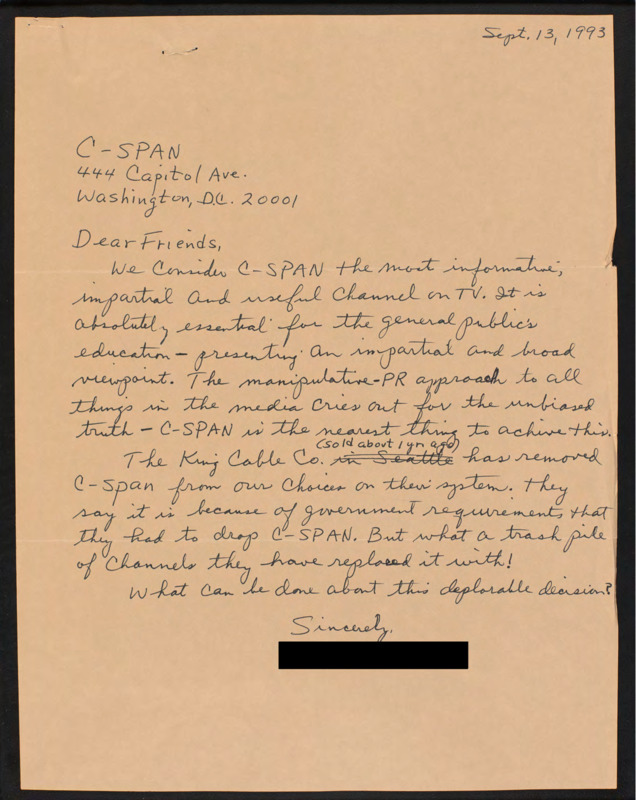 Sept. 13, 1993
C-SPAN
444 Capitol Ave.
Washington, D.C. 20001
Dear Friends,
We consider C-SPAN the most informative,
impartial and useful channel on TV. It is
absolutely essential for the general public's
education - presenting an impartial and broad
viewpoint. The manipulative-PR approach to all
things in the media cries out for the unbiased
truth - C-SPAN is the nearest thing to achive this.
(sold about 1 yr ago)
The King Cable Co. in Seattle has removed
C-Span from our choices on their system. They
say it is because of government requirements that
they had to drop C-SPAN. But what a trash pile
of channels they have replaced it with!
What can be done about this deplorable decision?
Sincerely,